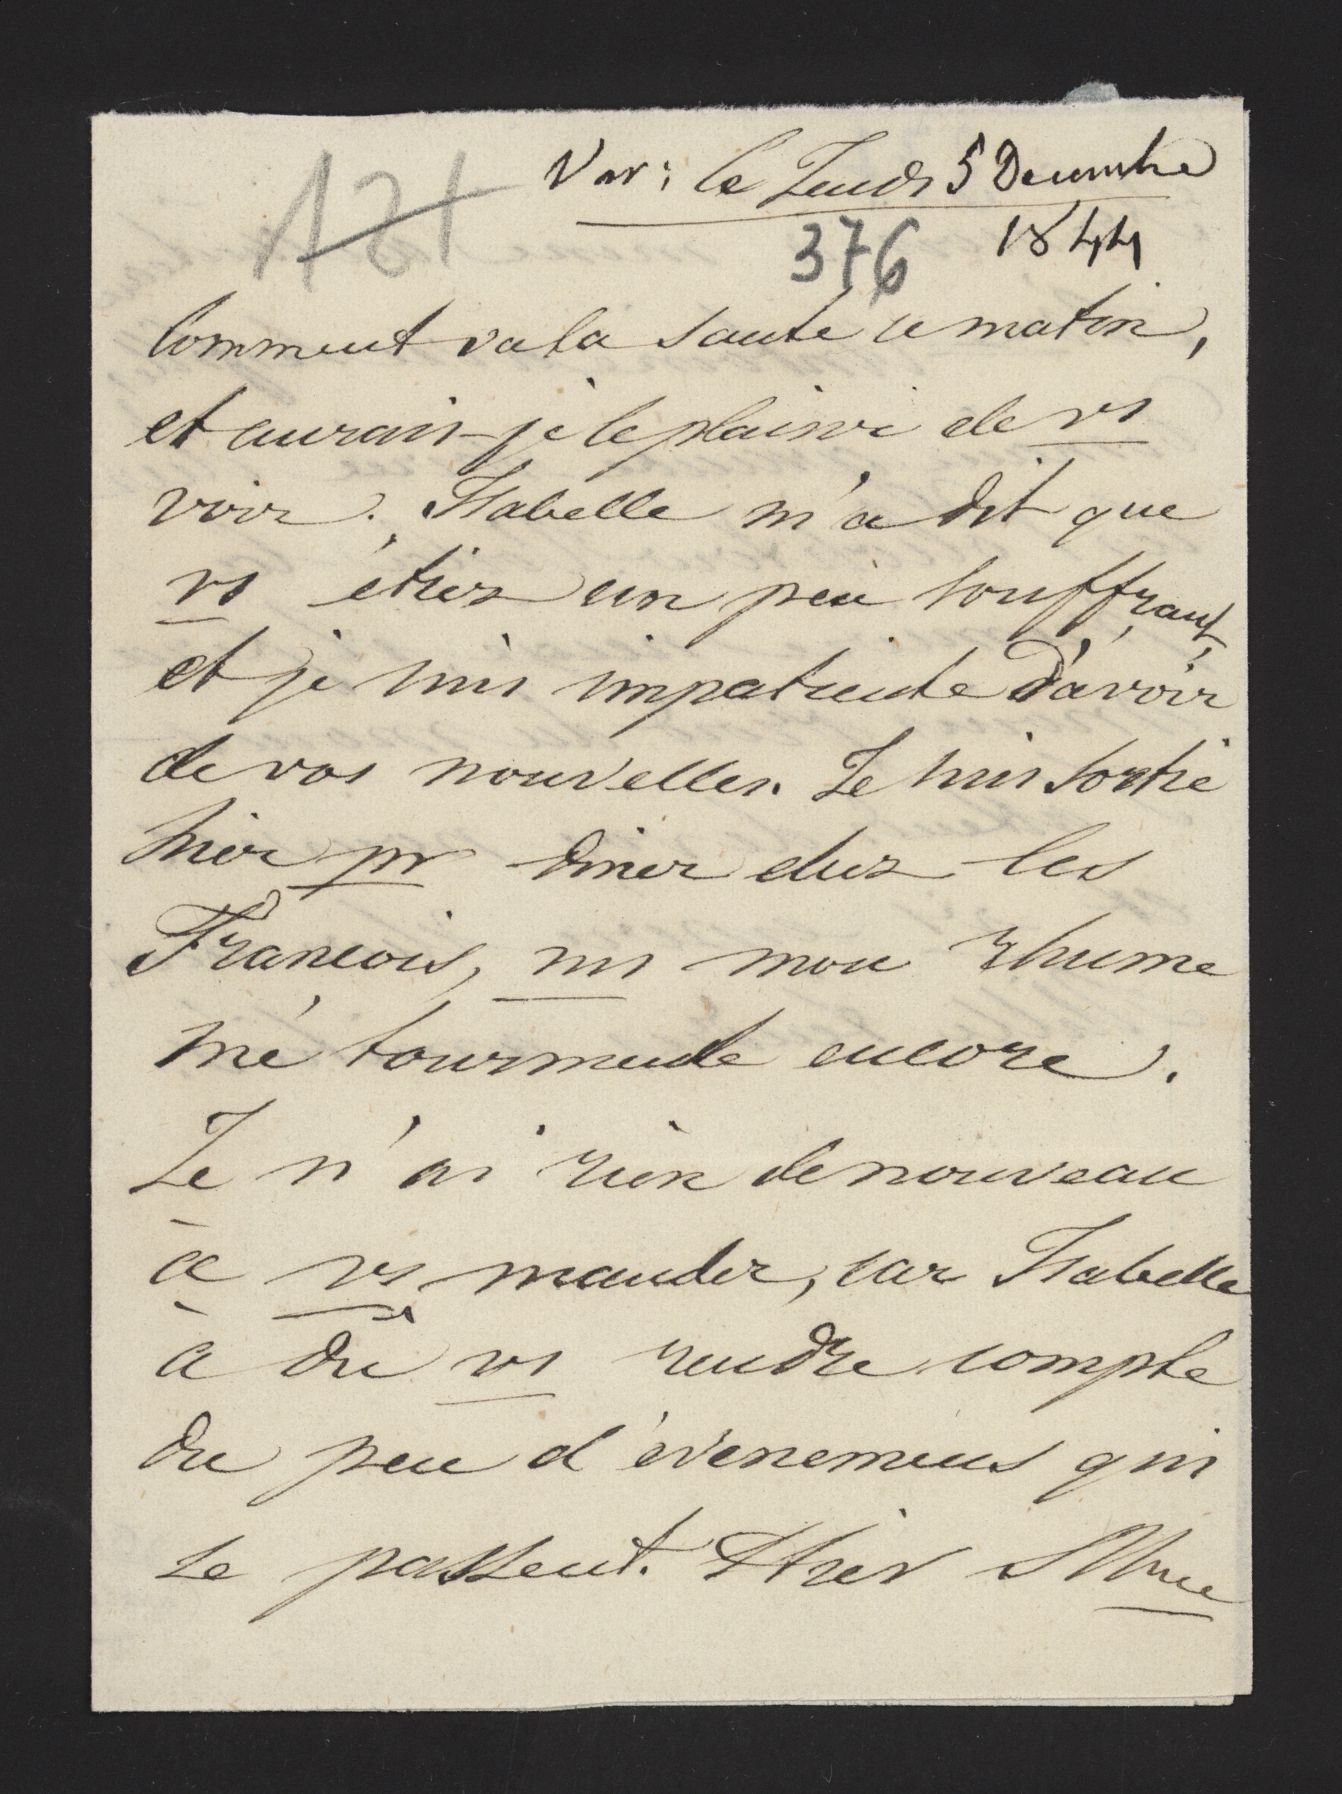 121
Var: le Jeudi 5 Decembre
376 1844
Comment va la santé ce matin,
et aurais-je le plaisir de vs
voir. Isabelle m'a dit que
vs étiez un peu souffrant,
et je suis impatiente d'avoir
de vos nouvelles. Je suis sortie
hier pr diner chez les
François, mais mon rhume
me tourmente encore.
Je n'ai rien de nouveau
à vs mander, car Isabelle
à du vs rendre compte
du peu d'évenemens qui
se passent. Hier Mme